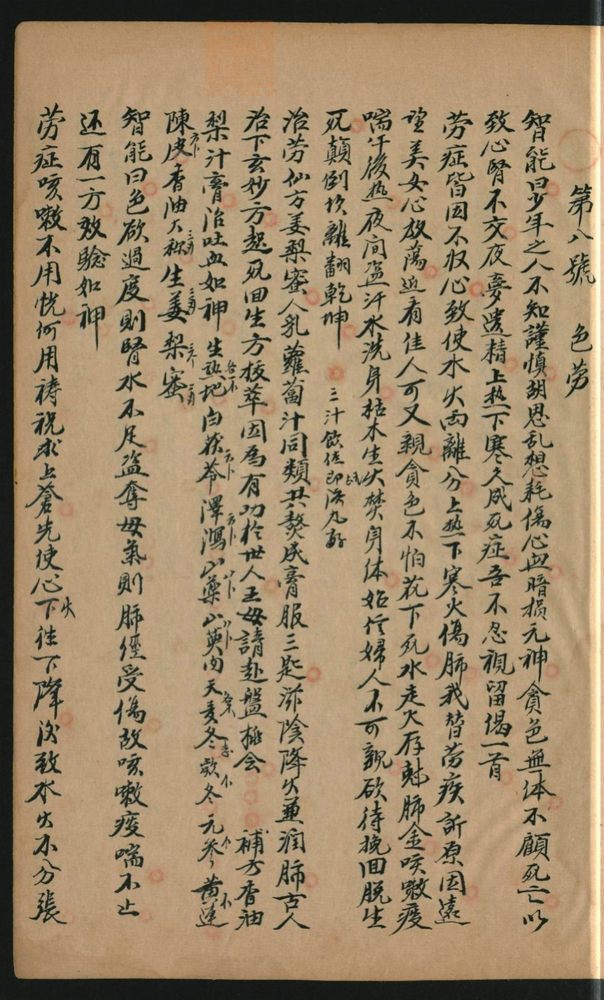 第八號 色劳
智能曰少年之人不知謹慎胡思乱想耗傷心血暗損元神貪色無体不顧死亡以
致心腎不交夜夢遺精上热下寒久成死症吾不忍視留偈一首
劳症皆因不収心致使水火两離分上热下寒火傷肺我替劳疾訴原因遠
望美女心放蕩近看佳人可又親貪色不怕花下死水走火存尅肺金咳嗽痰
喘午後热夜间盗汗水洗身枯木生火焚身体婦人不可親欲待挽回脱生
死顛倒坎離翻乾坤 三汁飲伍即济九
治劳仙方姜梨蜜人乳蘿蔔汁同類共熬成膏服三匙滋陰降火並润肺古人
治下玄妙方起死回生方拔萃因為有功於世人王母請赴盤桃会 補方香油
梨汁膏治吐血如神 生熟地白茯苓澤瀉山藥山萸肉天麦冬欵冬元参黄連
陳皮香油生姜梨蜜
智能曰色欲過度則腎水不足盗夺母氣則肺經受傷故咳嗽痰喘不止
还有一方效驗如神
劳症咳嗽不用忱何用祷祝求上蒼先使心火下往下降後致水火不分張